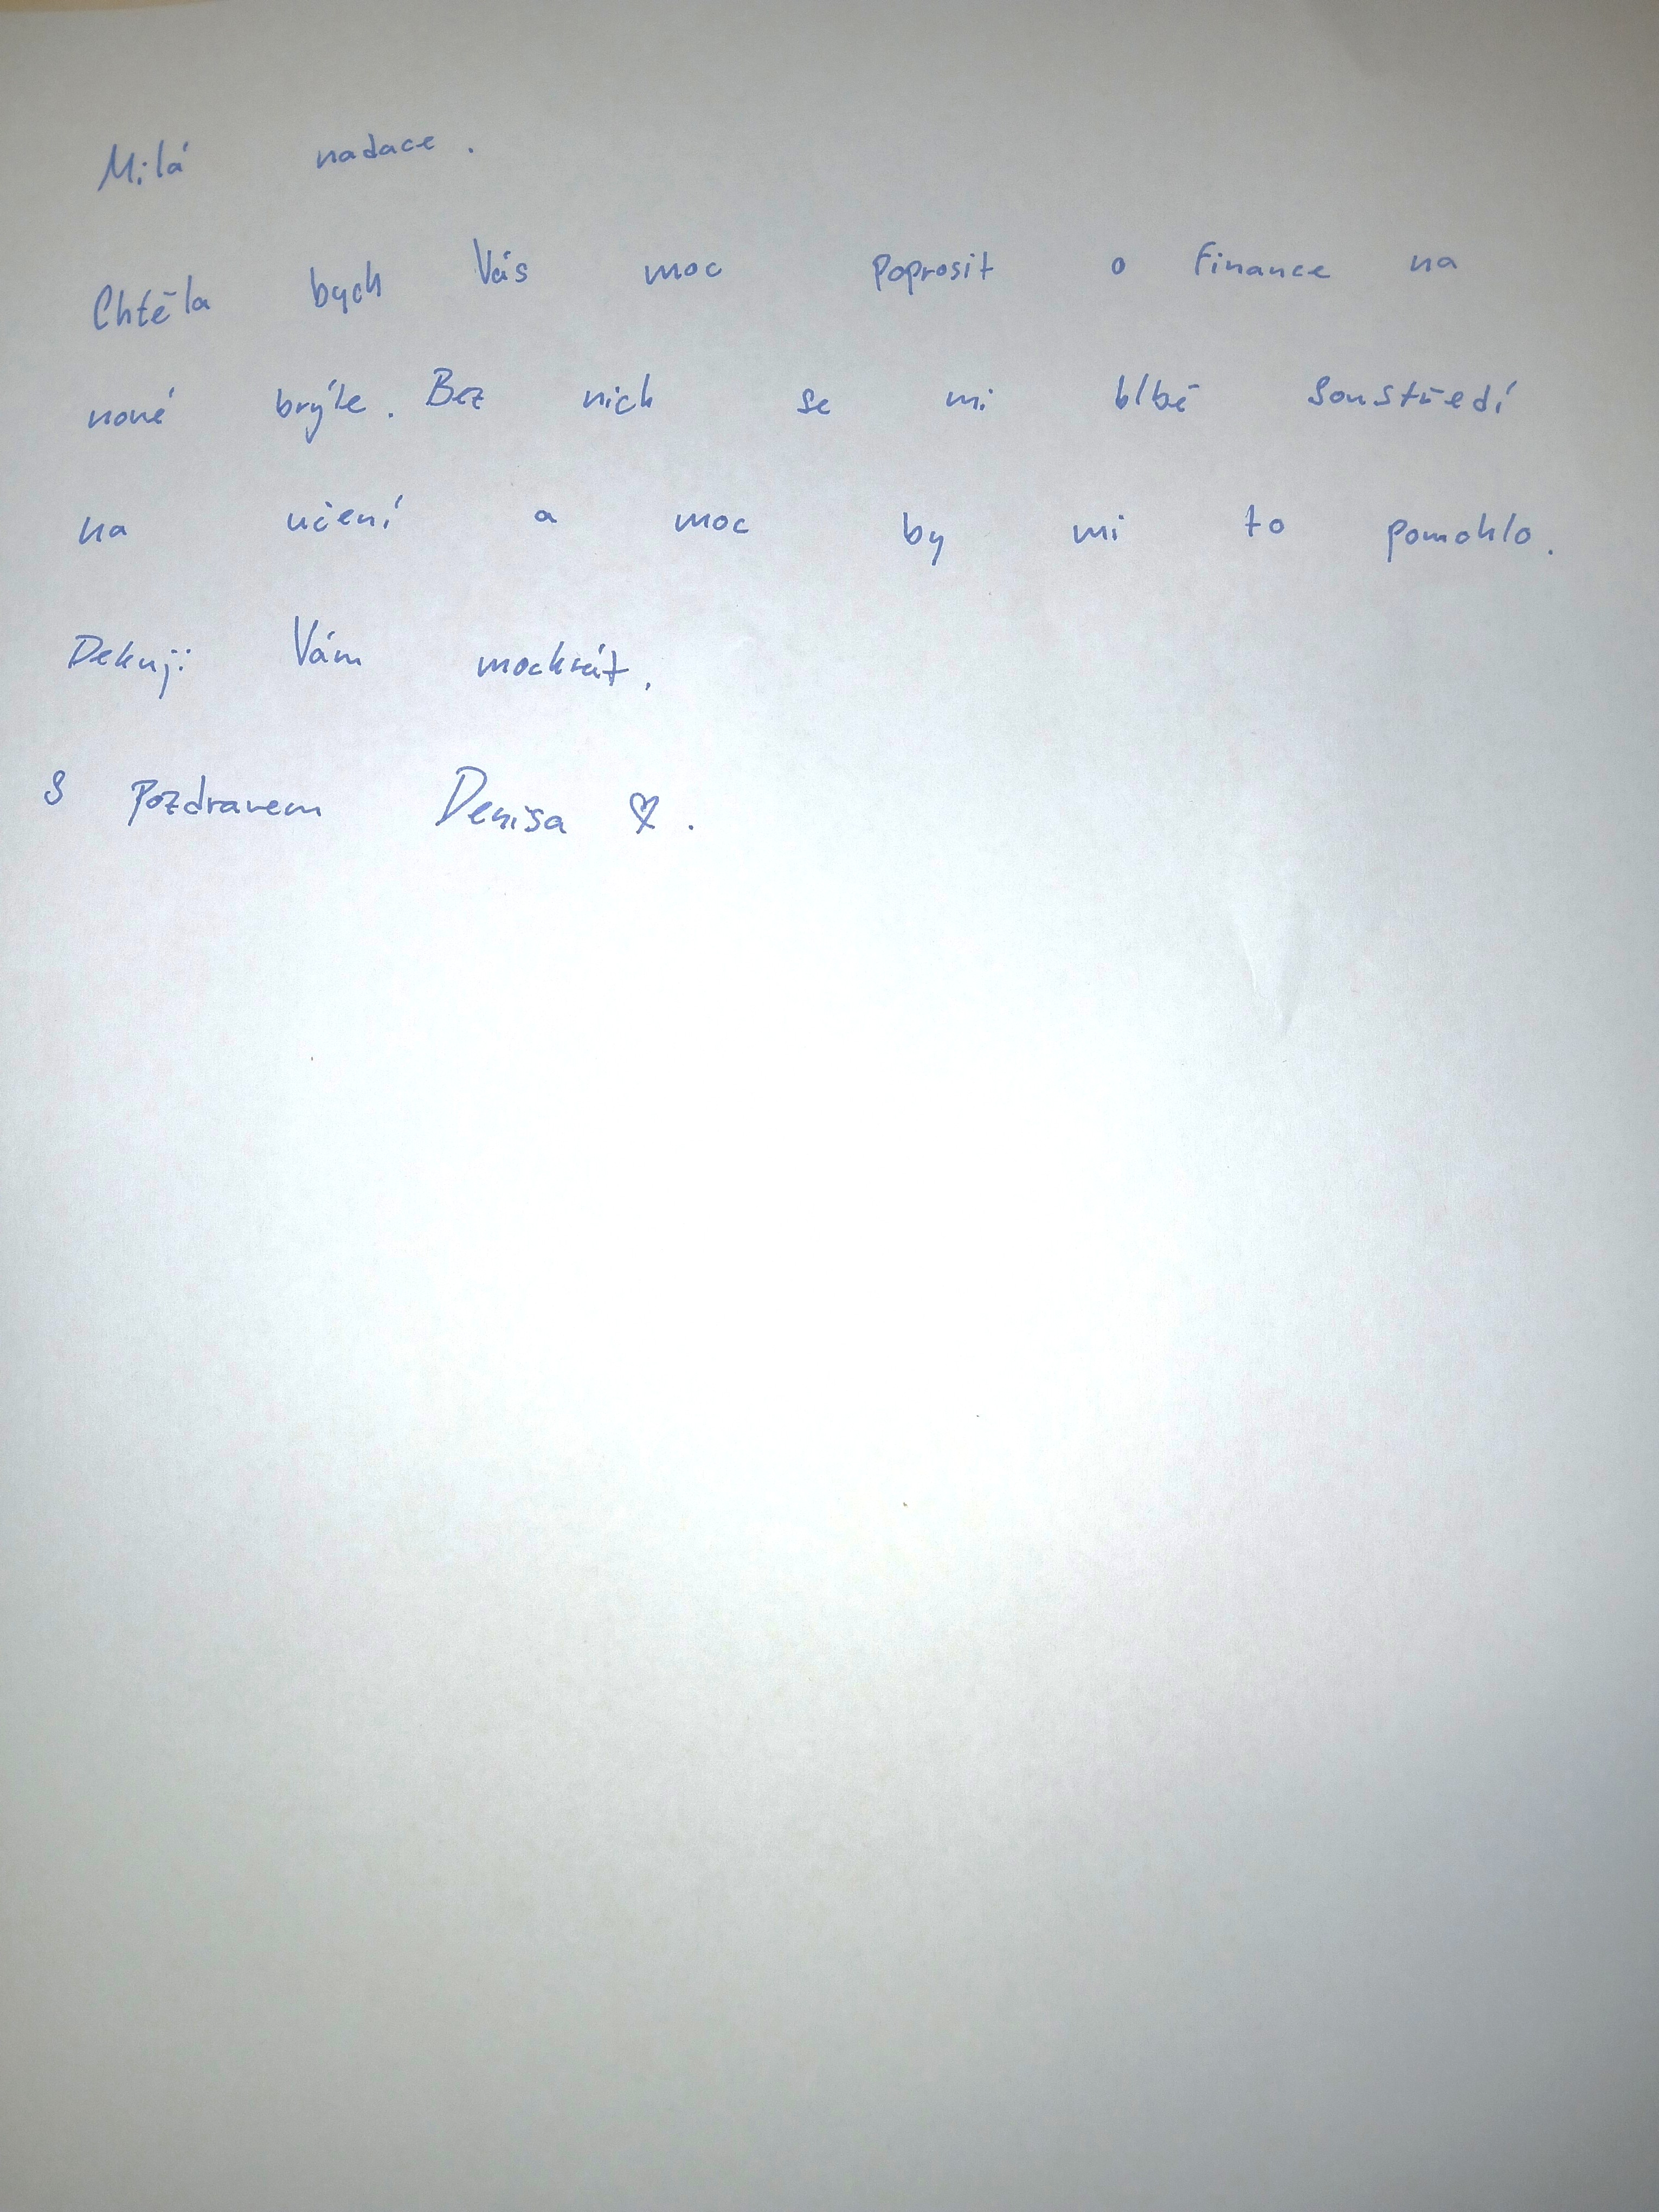 Milá nadace.
Chtěla bych Vás moc poprosit o finance na
nové brýle. Bez nich se mi blbě soustředí
na učení a moc by mi to pomohlo.
Dekuji Vám mockrát.
S Pozdravem Denisa ♡.